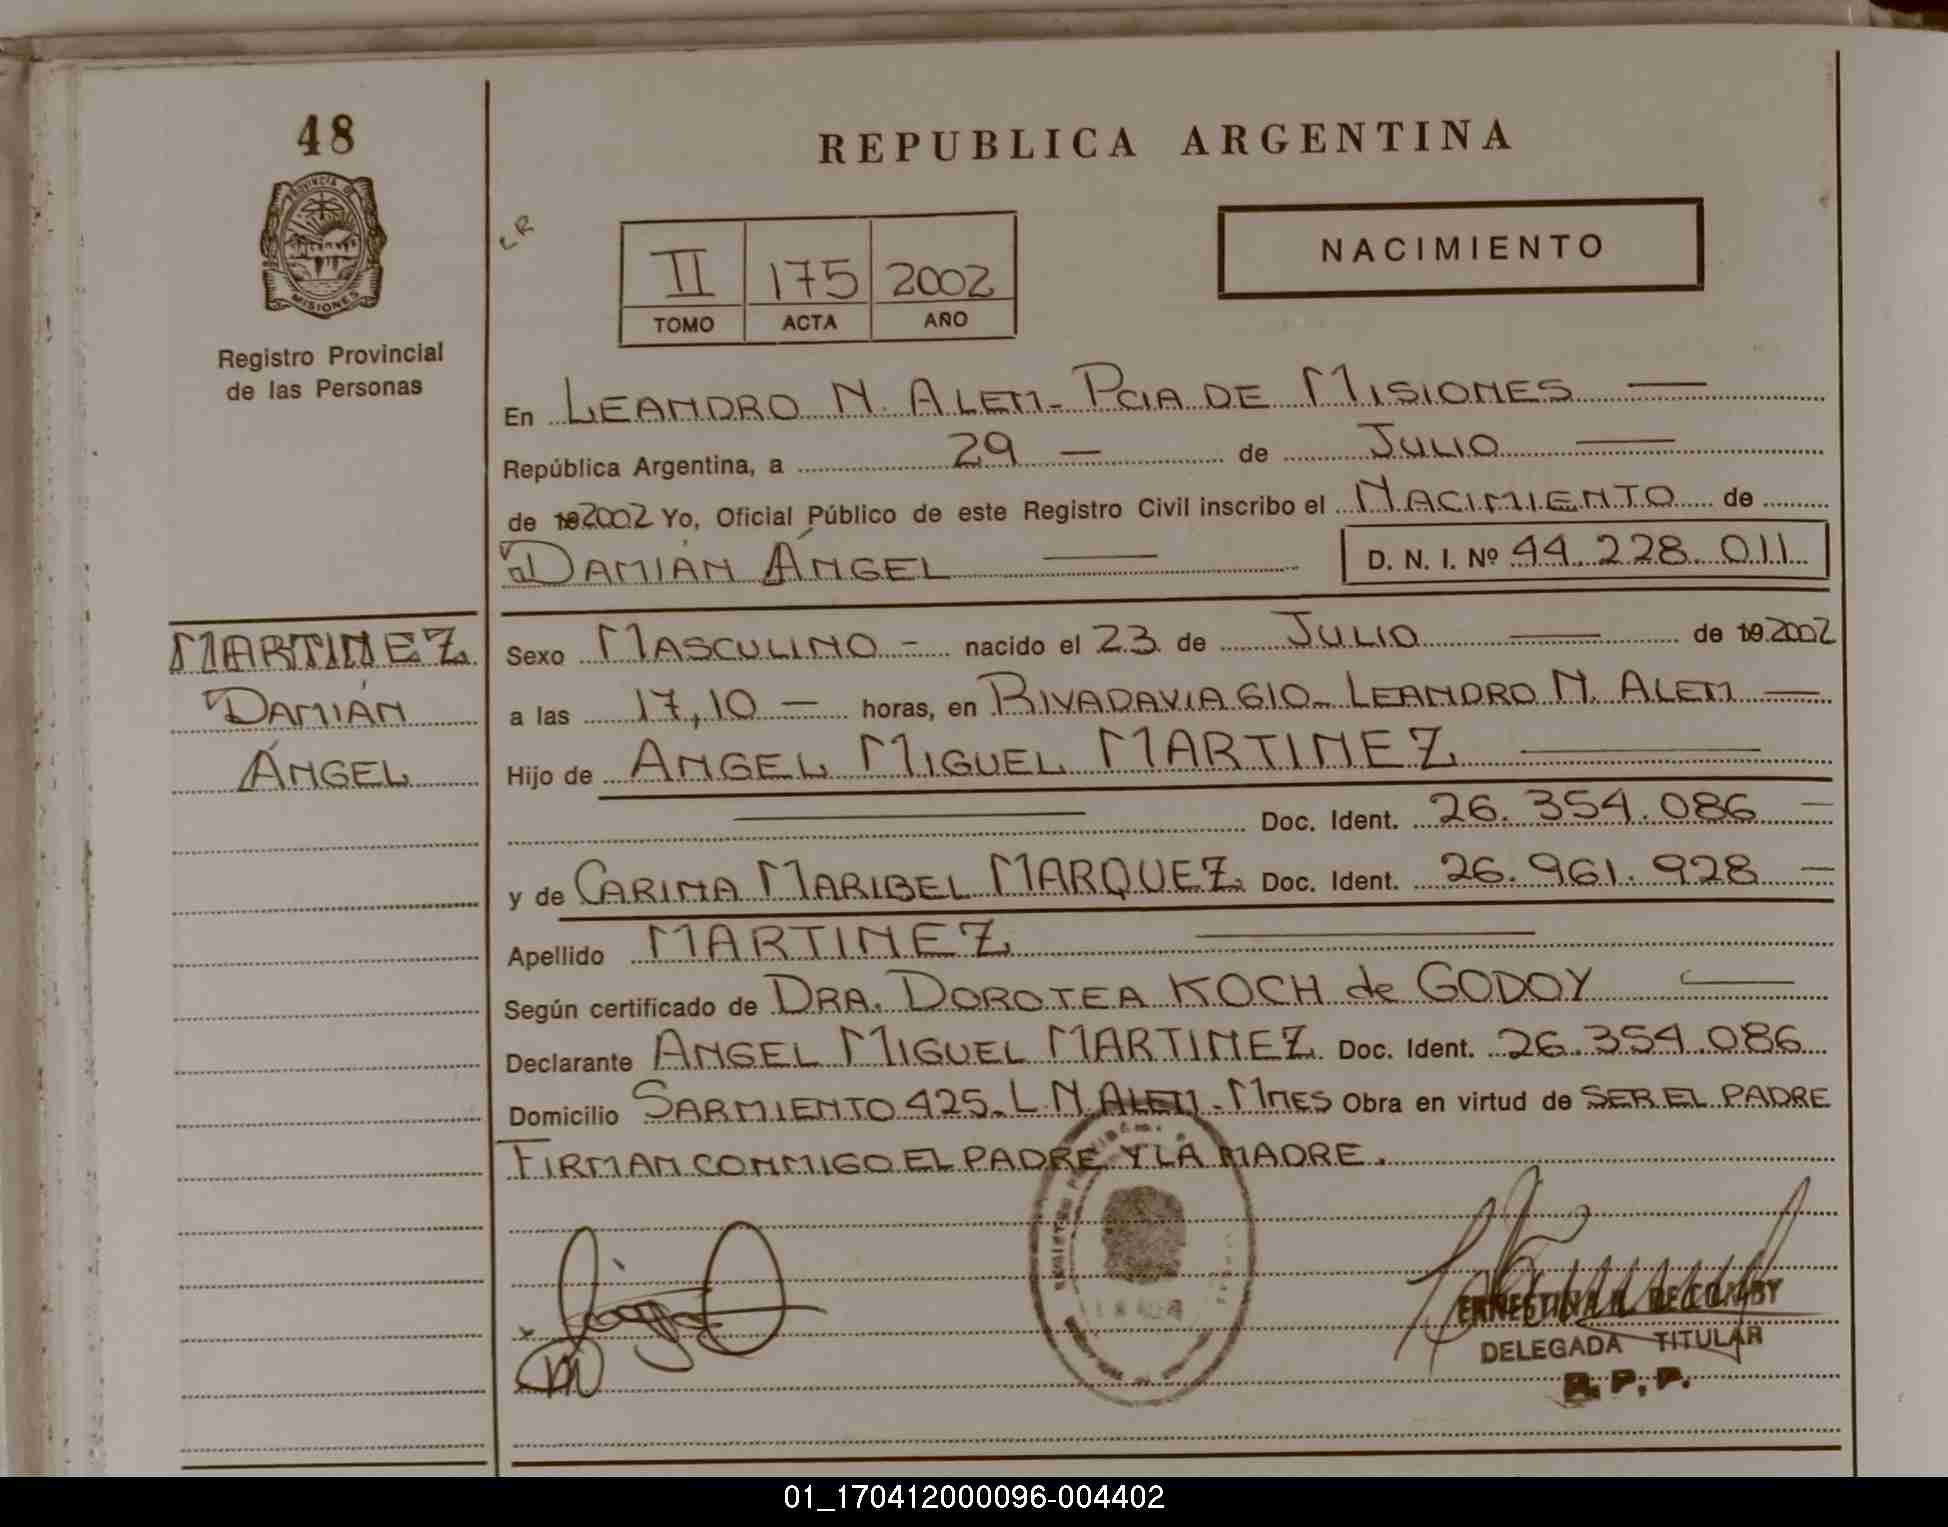 48
PROVINCIA DE
MISIONES
Registro Provincial
de las Personas
REPUBLICA ARGENTINA
LR
II 175 2002
TOMO ACTA AÑO
NACIMIENTO
En LEANDRO N. ALEM - PCIA DE MISIONES
República Argentina, a 29 — de JULIO
de 192002 Yo, Oficial Público de este Registro Civil inscribo el NACIMIENTO de
DAMIÁN ÁNGEL D. N. I. Nº 44.228.011
MARTINEZ
DAMIÁN
ÁNGEL
Sexo MASCULINO - nacido el 23 de JULIO de 19 2002
a las 17,10 — horas, en RIVADAVIA 610 - LEANDRO N. ALEM —
Hijo de ANGEL MIGUEL MARTINEZ
Doc. Ident. 26.354.086 —
y de CARINA MARIBEL MARQUEZ Doc. Ident. 26.961.928 —
Apellido MARTINEZ
Según certificado de DRA. DOROTEA KOCH de GODOY
Declarante ANGEL MIGUEL MARTINEZ Doc. Ident. 26.354.086
Domicilio SARMIENTO 425 - L.N. ALEM - MNES Obra en virtud de SER EL PADRE
FIRMAN CONMIGO EL PADRE Y LA MADRE.
DELEGADA TITULAR
R. P. P.
01_170412000096-004402